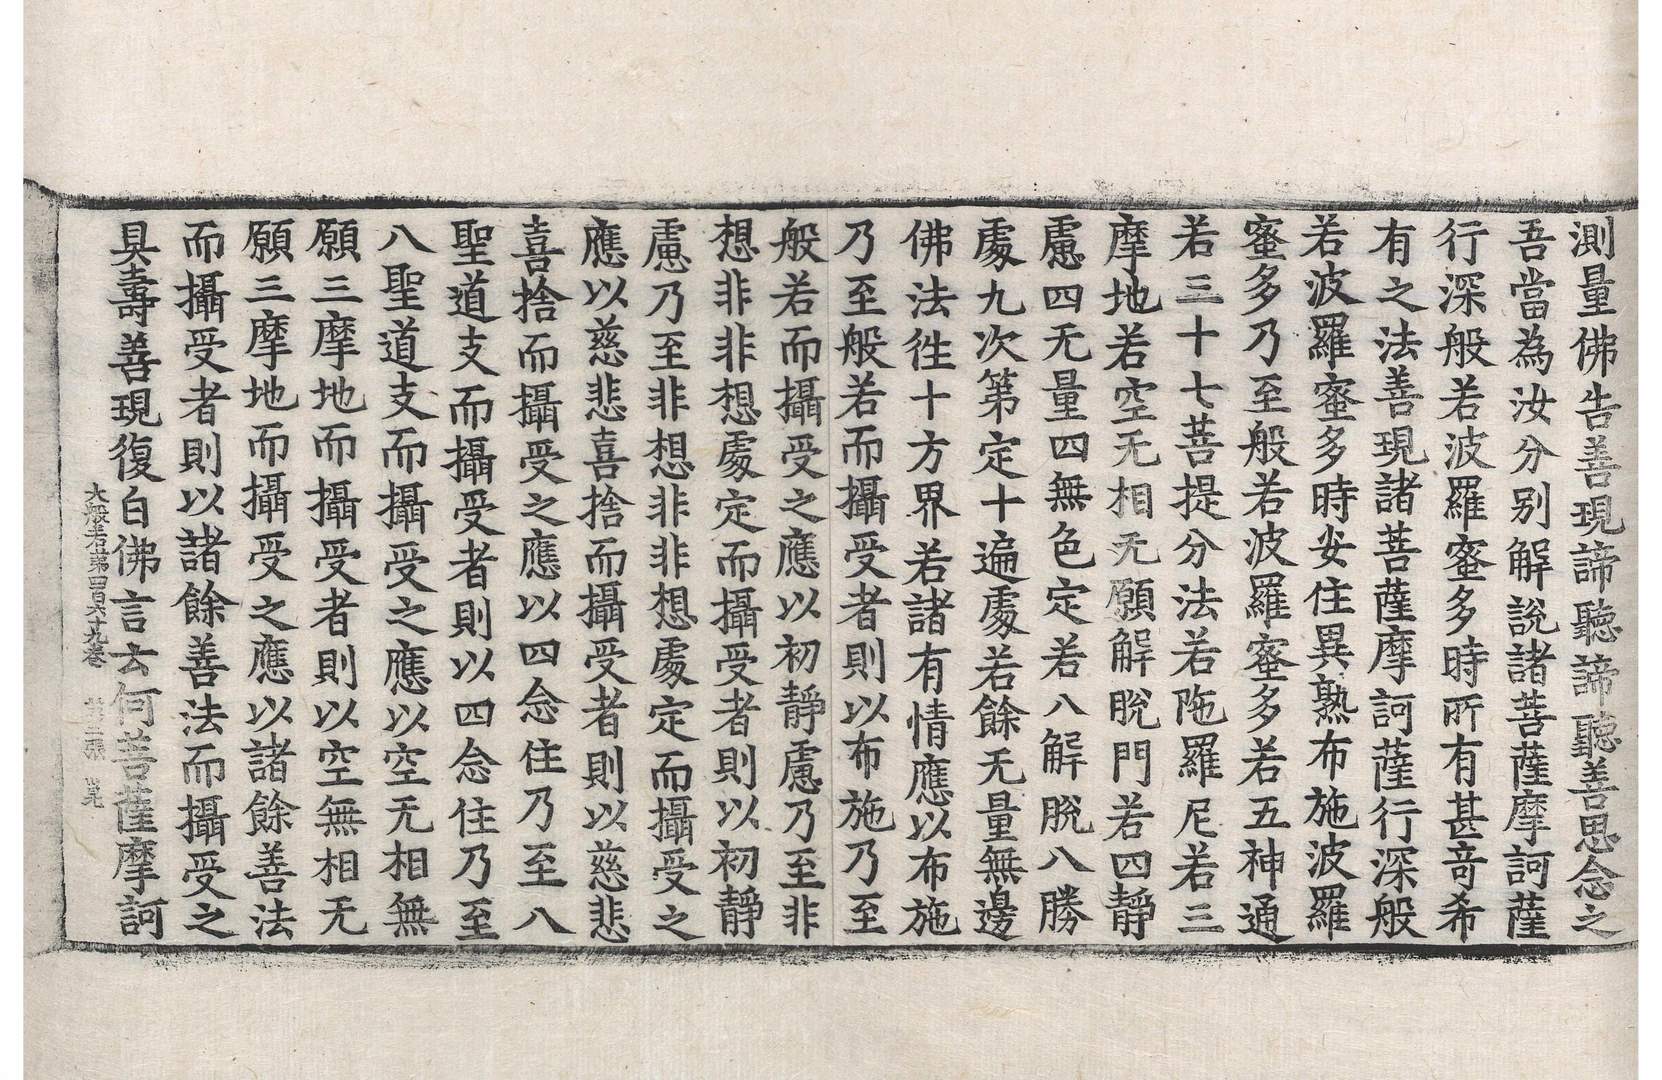 測量佛告善現諦聽諦聽善思念之
吾當為汝分別解說諸菩薩摩訶薩
行深般若波羅蜜多時所有甚奇希
有之法善現諸菩薩摩訶薩行深般
若波羅蜜多時安住異熟布施波羅
蜜多乃至般若波羅蜜多若五神通
若三十七菩提分法若陁羅尼若三
摩地若空无相无願解脫門若四靜
慮四无量四無色定若八解脫八勝
處九次第定十遍處若餘无量無邊
佛法徃十方界若諸有情應以布施
乃至般若而攝受者則以布施乃至
般若而攝受之應以初靜慮乃至非
想非非想處定而攝受者則以初靜
慮乃至非想非非想處定而攝受之
應以慈悲喜捨而攝受者則以慈悲
喜捨而攝受之應以四念住乃至八
聖道支而攝受者則以四念住乃至
八聖道支而攝受之應以空无相無
願三摩地而攝受者則以空無相无
願三摩地而攝受之應以諸餘善法
而攝受者則以諸餘善法而攝受之
具壽善現復白佛言云何菩薩摩訶
大般若第四百六十九卷 第三張 崑